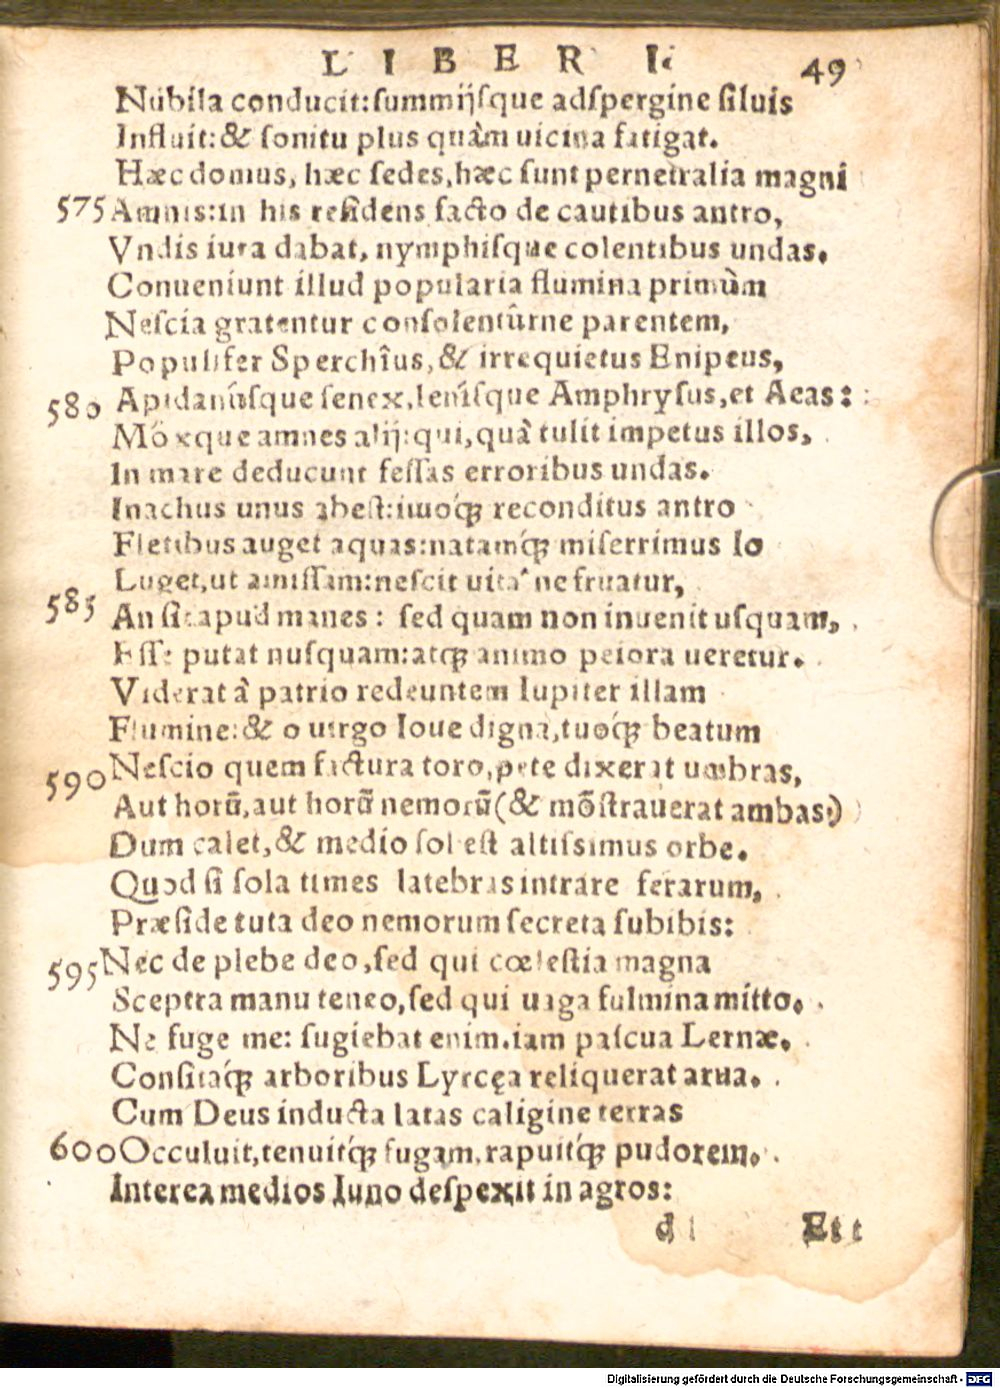 LIBER I. 49
Nubila conducit:summijsque adspergine siluis
Influit:& sonitu plus quàm uicina fatigat.
Hæc domus, hæc sedes,hæc sunt pernetralia magni
575 Amnis:in his residens facto de cautibus antro,
Vndis iura dabat, nymphisque colentibus undas.
Conueniunt illud popularia flumina primùm
Nescia gratentur consolentûrne parentem,
Populifer Sperchîus,& irrequietus Enipeus,
580 Apidanúsque senex,lenísque Amphrysus,et Aeas:
Móxque amnes alij:qui,quà tulit impetus illos,
In mare deducunt fessas erroribus undas.
Inachus unus abest:imoq́ꝫ reconditus antro
Fletibus auget aquas:natamq́ꝫ miserrimus Io
Luget,ut amissam:nescit uita ne fruatur,
585 An sit apud manes: sed quam non inuenit usquam,
Esse putat nusquam:atqꝫ animo peiora ueretur.
Viderat à patrio redeuntem Iupiter illam
Flumine:& o uirgo Ioue digna,tuoq́ꝫ beatum
590 Nescio quem factura toro,pete dixerat umbras,
Aut horũ,aut horũ nemorũ(& mõstrauerat ambas:)
Dum calet,& medio sol est altissimus orbe.
Quod si sola times latebras intrare ferarum,
Præside tuta deo nemorum secreta subibis:
595 Nec de plebe deo,sed qui cœlestia magna
Sceptra manu teneo,sed qui uaga fulmina mitto.
Ne fuge me: fugiebat enim.iam pascua Lernæ,
Consitaq́ꝫ arboribus Lyrcęa reliquerat arua.
Cum Deus inducta latas caligine terras
600 Occuluit,tenuitq́ꝫ fugam,rapuitq́ꝫ pudorem.
Interea medios Iuno despexit in agros:
d Et
Digitalisierung gefördert durch die Deutsche Forschungsgemeinschaft - DFG